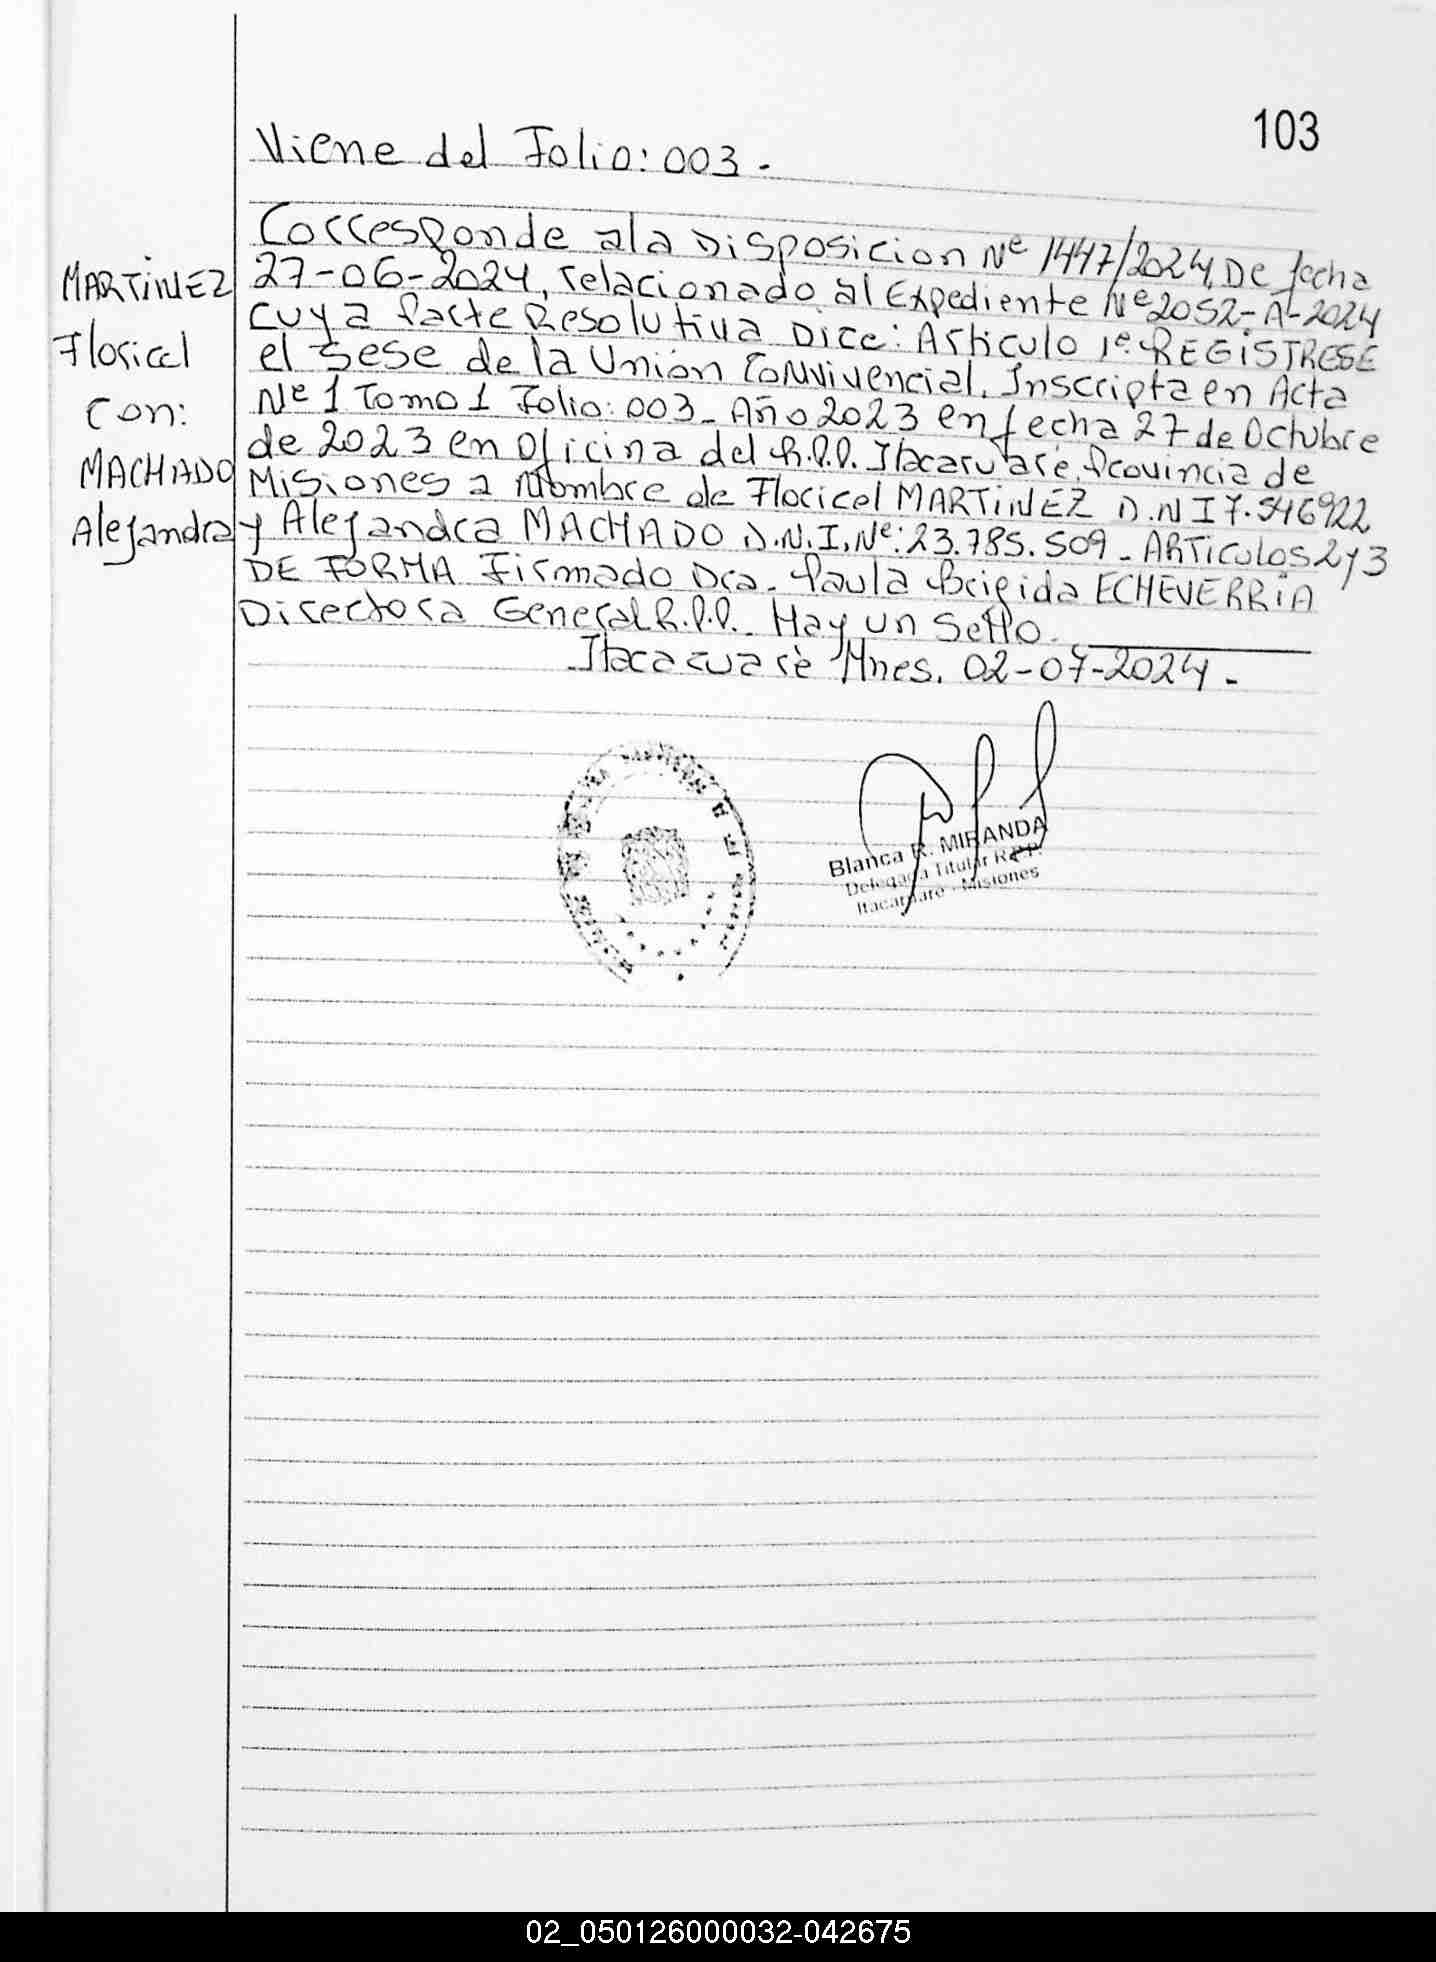 103
Viene del Folio: 003.
Corresponde a la Disposicion Nº 1447/2024, De fecha
27-06-2024, relacionado al Expediente Nº 2052-A-2024
cuya Parte Resolutiva Dice: Articulo 1º. REGISTRESE
el sese de la Unión Convivencial, Inscripta en Acta
Nº 1 Tomo 1 Folio: 003_ Año 2023 en fecha 27 de Octubre
de 2023 en oficina del R.P.P. Itacaruaré, Provincia de
Misiones a Nombre de Floricel MARTINEZ D.N I 7.546922
y Alejandra MACHADO D.N.I. Nº: 23.785.509_ ARTiculos 2 y 3
DE FORMA Firmado Dra. Paula Brigida ECHEVERRIA
Directora General R.P.P._ Hay un Sello.
Itacaruaré Mnes. 02-07-2024-
MARTINEZ
Floricel
con:
MACHADO
Alejandra
Blanca R. MIRANDA
Delegada Titular R.P.P.
Itacaruaré - Misiones
02_050126000032-042675